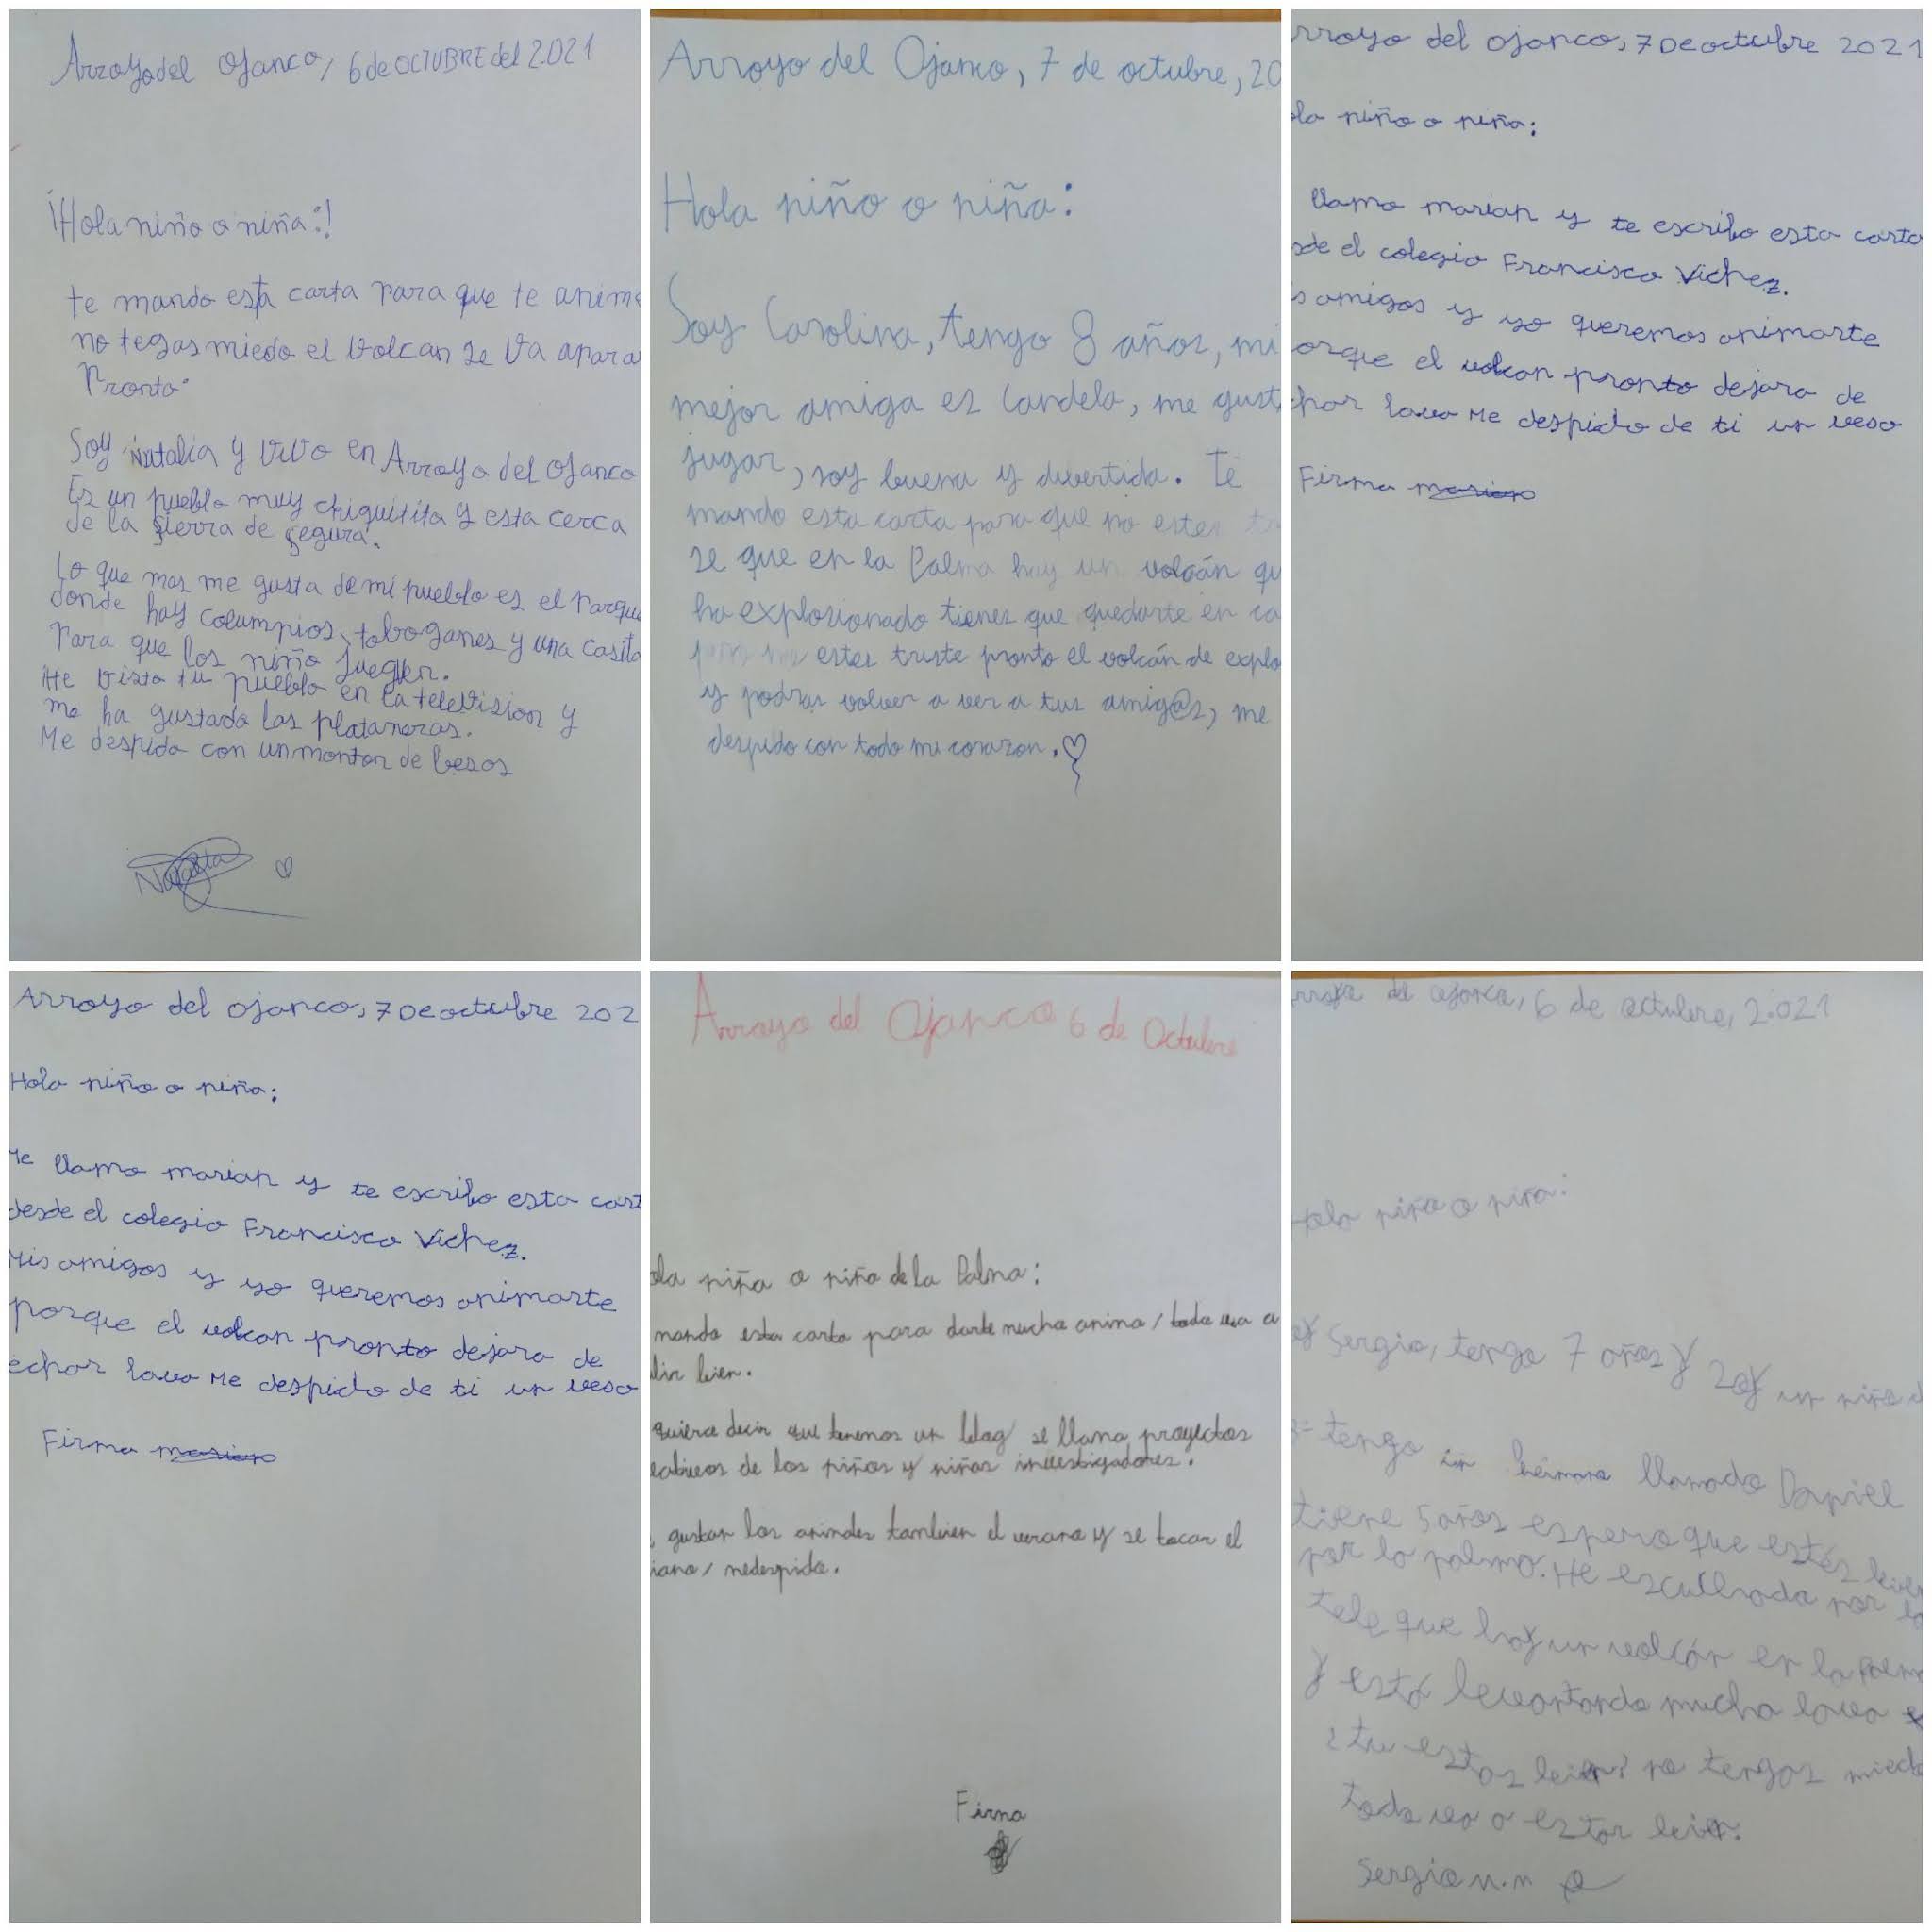 Arroyo del Ojanco, 6 de OCTUBRE del 2.021
¡Hola niño o niña:!
te mando esta carta para que te anime
no tegas miedo el volcan se va apara
Pronto.
Soy Natalia y vivo en Arroyo del Ojanco
Es un pueblo muy chiquitito y esta cerca
de la sierra de segura.
Lo que mas me gusta de mi pueblo es el Parque
donde hay columpios, toboganes y una casita
Para que los niño jueguen.
He visto tu pueblo en la television y
me ha gustado las plataneras.
Me despido con un monton de besos
Natalia
Arroyo del Ojanco, 7 de octubre, 20
Hola niño o niña:
Soy Carolina, tengo 8 años, mi
mejor amiga es Candela, me gust
jugar, soy buena y divertida. Te
mando esta carta para que no estes tr
se que en la Palma hay un volcán qu
ha explosionado tienes que quedarte en ca
estes triste pronto el volcán de explo
y podras volver a ver a tus amig@s, me
despido con todo mi corazon.
rroyo del ojanco, 7 De octubre 2021
ola niño o niña:
llamo marian y te escribo esta carta
sde el colegio Francisco Vichez.
s amigos y yo queremos animarte
orque el volcan pronto dejara de
char lava Me despido de ti un veso
Firma marian
Arroyo del ojanco, 7 De octubre 202
Hola niño o niña:
Me llamo marian y te escribo esta cart
desde el colegio Francisco Vichez.
Mis amigos y yo queremos animarte
porque el volcan pronto dejara de
echar lava Me despido de ti un veso
Firma marian
Arroyo del Ojanco 6 de Octubre
ola niña o niño de la Palma:
mando esta carta para darte mucho animo, todo va a
lir bien.
quiero decir que tenemos un blog se llama proyectos
de los niños y niñas investigadores.
gustan los animales tambien el verano y se tocar el
iano, medespido.
Firma
rroyo del ojanco, 6 de octubre, 2.021
Hola niño o niña:
oy Sergio, tengo 7 años y soy un niño d
tengo un heimano llamado Daniel
tiene 5 años espero que estés bien
por la palma. He escuchado por la
tele que hay un volcán en la Palm
y está levantando mucha lava
¿tu estas bien? no tengas miedo
todo va a estar bien.
Sergio M.M